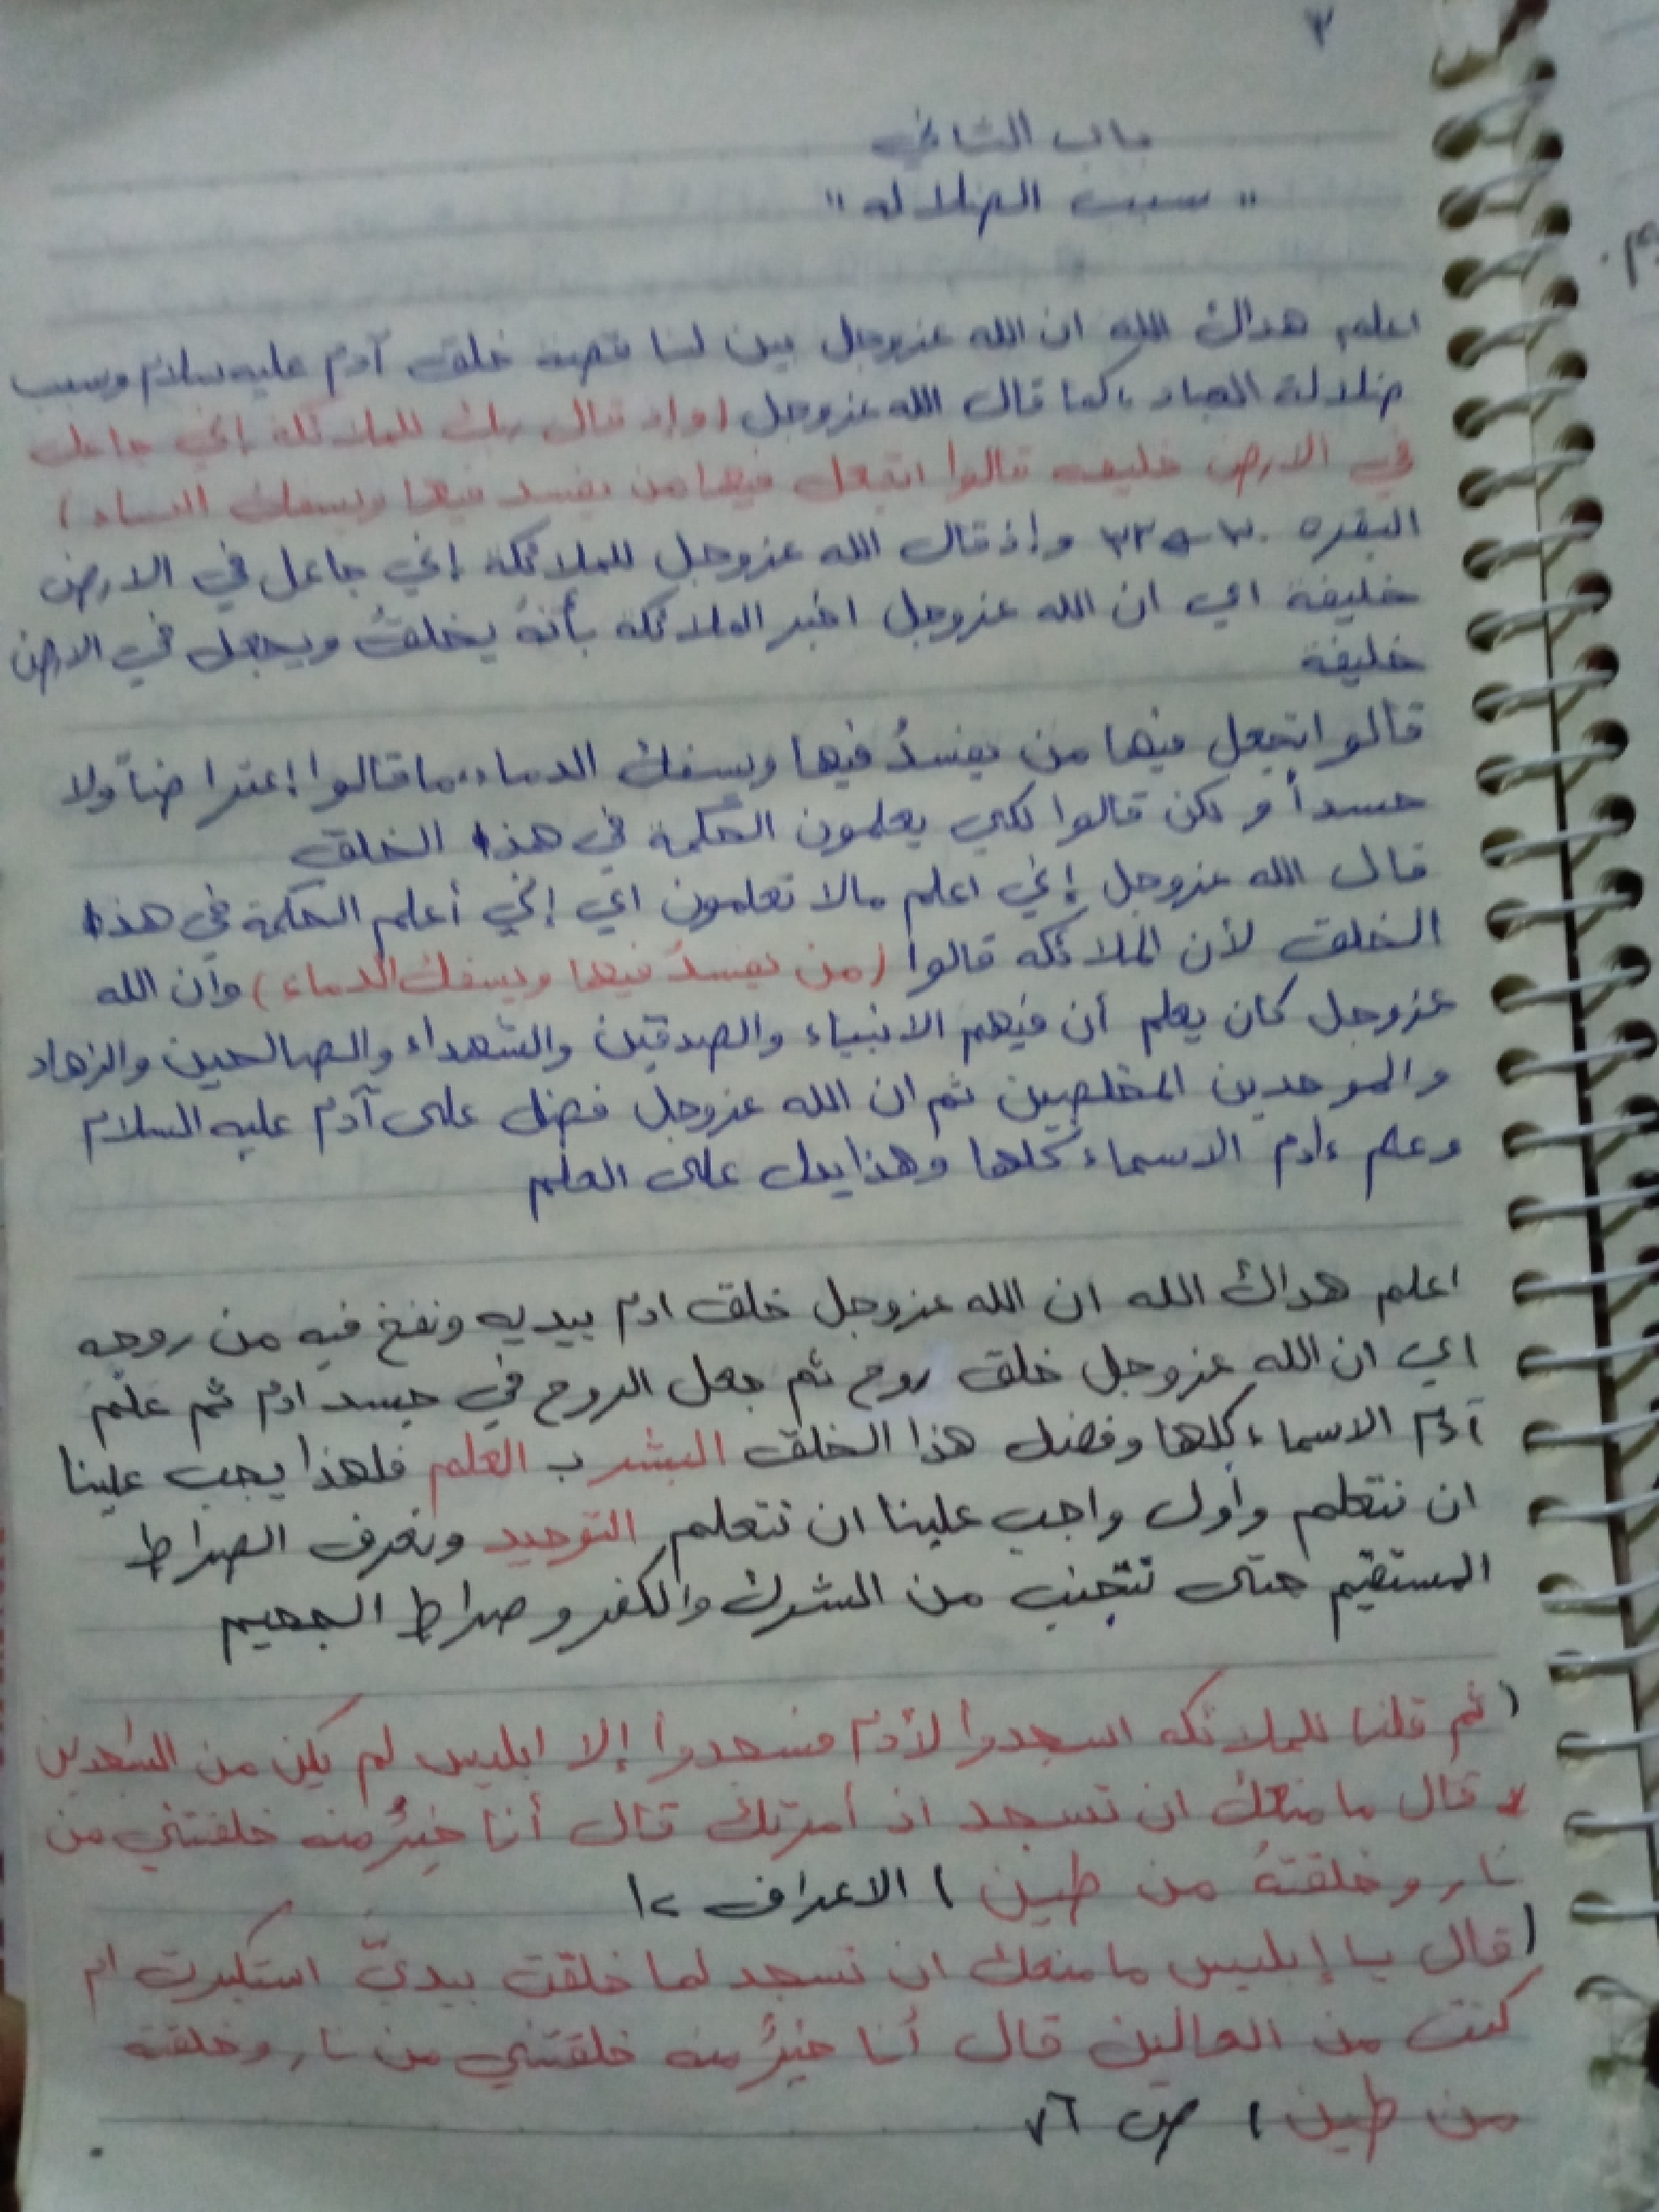 ٣
باب الثاني
"سبب الضلاله"
اعلم هداك الله ان الله عزوجل بين لنا قصة خلق آدم عليه سلام وسبب
ضلالة العباد، كما قال الله عزوجل (وإذ قال ربك للملائكة إني جاعل
في الارض خليفه قالوا اتجعل فيها من يفسد فيها ويسفك الدماء)
البقره ٣٠-٣٢ وإذ قال الله عزوجل للملائكة إني جاعل في الارض
خليفة اي ان الله عزوجل اخبر الملائكة بأنهُ يخلقُ ويجعل في الارض
خليفة
قالوا اتجعل فيها من يفسدُ فيها ويسفك الدماء، ما قالوا إعتراضاً ولا
حسداً و لكن قالوا لكي يعلمون الحكمة في هذا الخلق
قال الله عزوجل إني اعلم مالا تعلمون اي إني أعلم الحكمة في هذا
الخلق لأن الملائكه قالوا (من يفسدُ فيها ويسفك الدماء) وأن الله
عزوجل كان يعلم أن فيهم الانبياء والصدقين والشهداء والصالحين والزهاد
والموحدين المخلصين ثم ان الله عزوجل فضل على آدم عليه السلام
وعلم ءادم الاسماء كلها وهذا يدل على العلم
اعلم هداك الله ان الله عزوجل خلق ادم بيديه ونفخ فيه من روحه
اي ان الله عزوجل خلق روح ثم جعل الروح في جسد ادم ثم علّم
آدم الاسماء كلها وفضل هذا الخلق البشر ب العلم فلهذا يجب علينا
ان نتعلم وأول واجب علينا ان نتعلم التوحيد ونعرف الصراط
المستقيم حتى نتجنب من الشرك والكفر و صراط الجحيم
(ثم قلنا للملائكه اسجدوا لأدم فسجدوا إلا ابليس لم يكن من السٰجدين
قال ما منعك ان تسجد اذ أمرتك قال أنا خيرٌ منه خلقتني من
نار و خلقتهُ من طين) الاعراف ١٢
(قال يا إبليس ما منعك ان تسجد لما خلقت بيديّ استكبرت ام
كنت من العالين قال أنا خيرٌ منه خلقتني من نار وخلقته
من طين) ص ٧٦